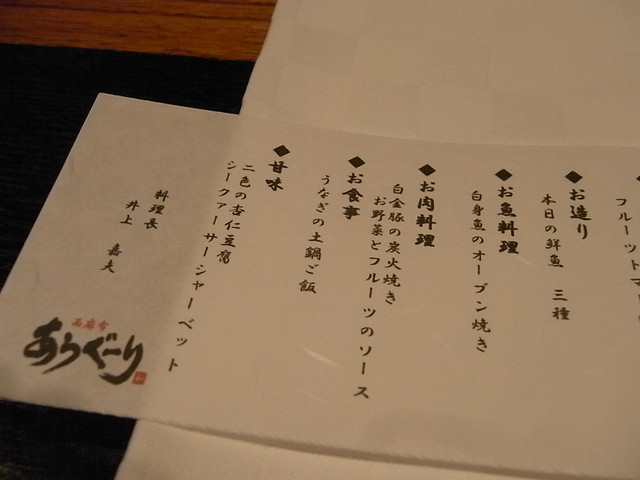 フルーツトマ
◆お造り
本日の鮮魚 三種
◆お魚料理
白身魚のオーブン焼き
◆お肉料理
白金豚の炭火焼き
お野菜とフルーツのソース
◆お食事
うなぎの土鍋ご飯
◆甘味
二色の杏仁豆腐
シークァーサーシャーベット
料理長
井上 嘉夫
西麻布
あらぐーり